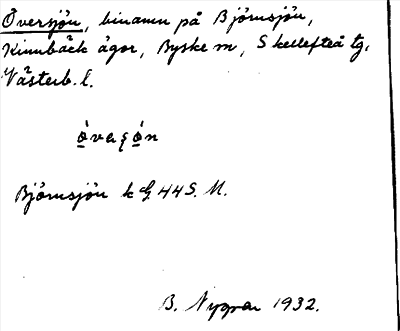 Översjön, binamn på Björnsjön,
Kinnbäck ägor, Byske sn, Skellefteå tg.
Västerb. l.
òvaʂòn
Björnsjön k G. 44 S. M.
B. Nygren 1932.